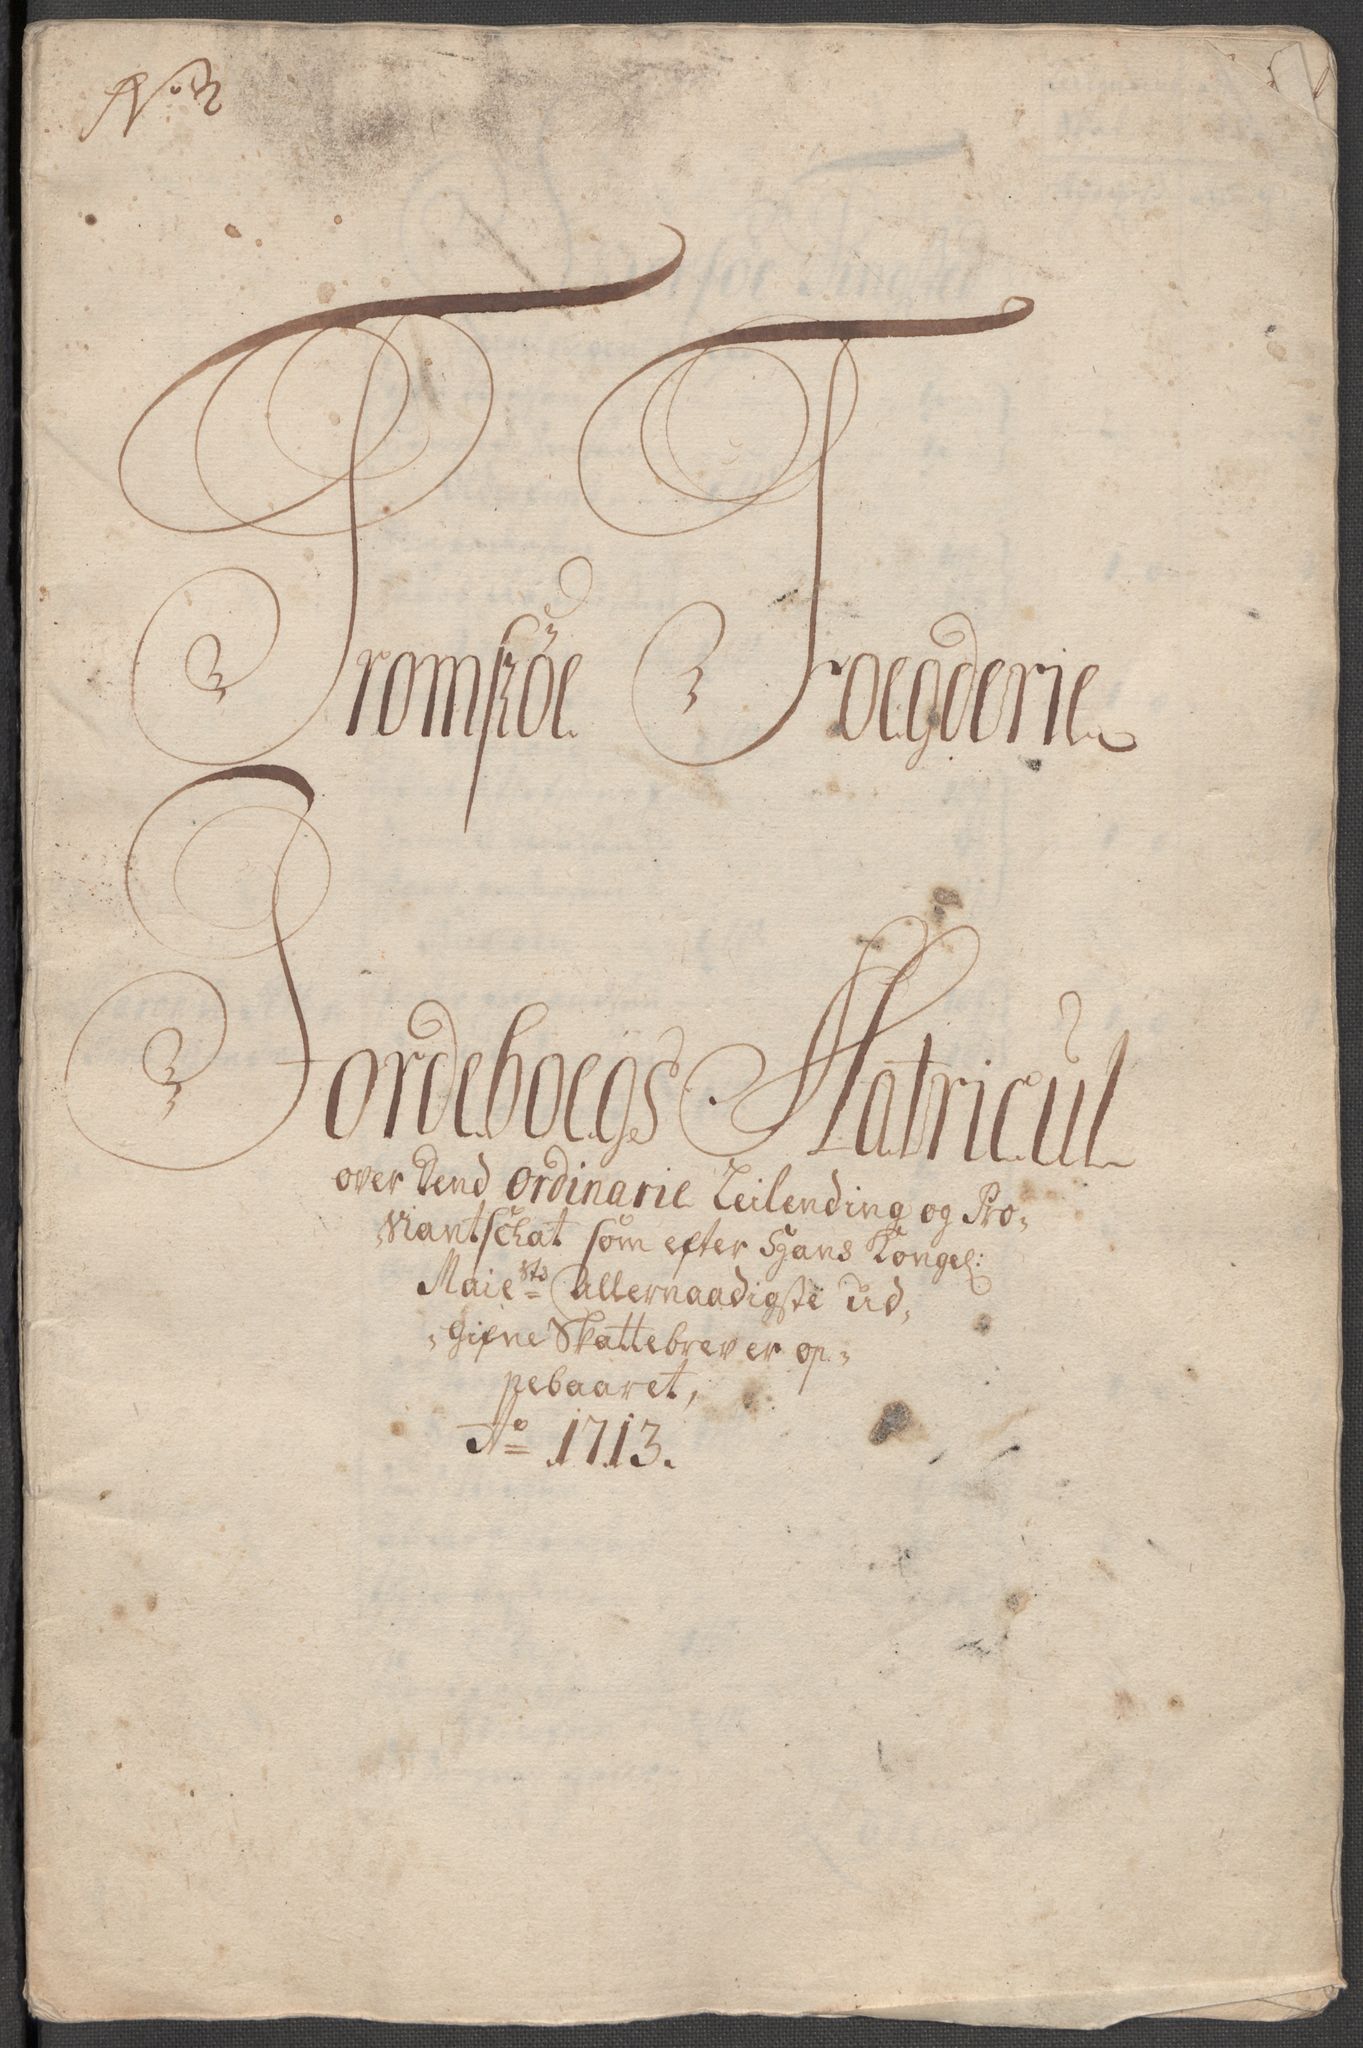 No 2
Tromsöe Foegderie
Jordeboegs Matricul
over dend ordinarie Leilending og Pro-
viantschat som efter Hans Kongel:
Maiests Allernaadigste ud-
gifne Skattebrev er op-
pebaaret,
Ao 1713.